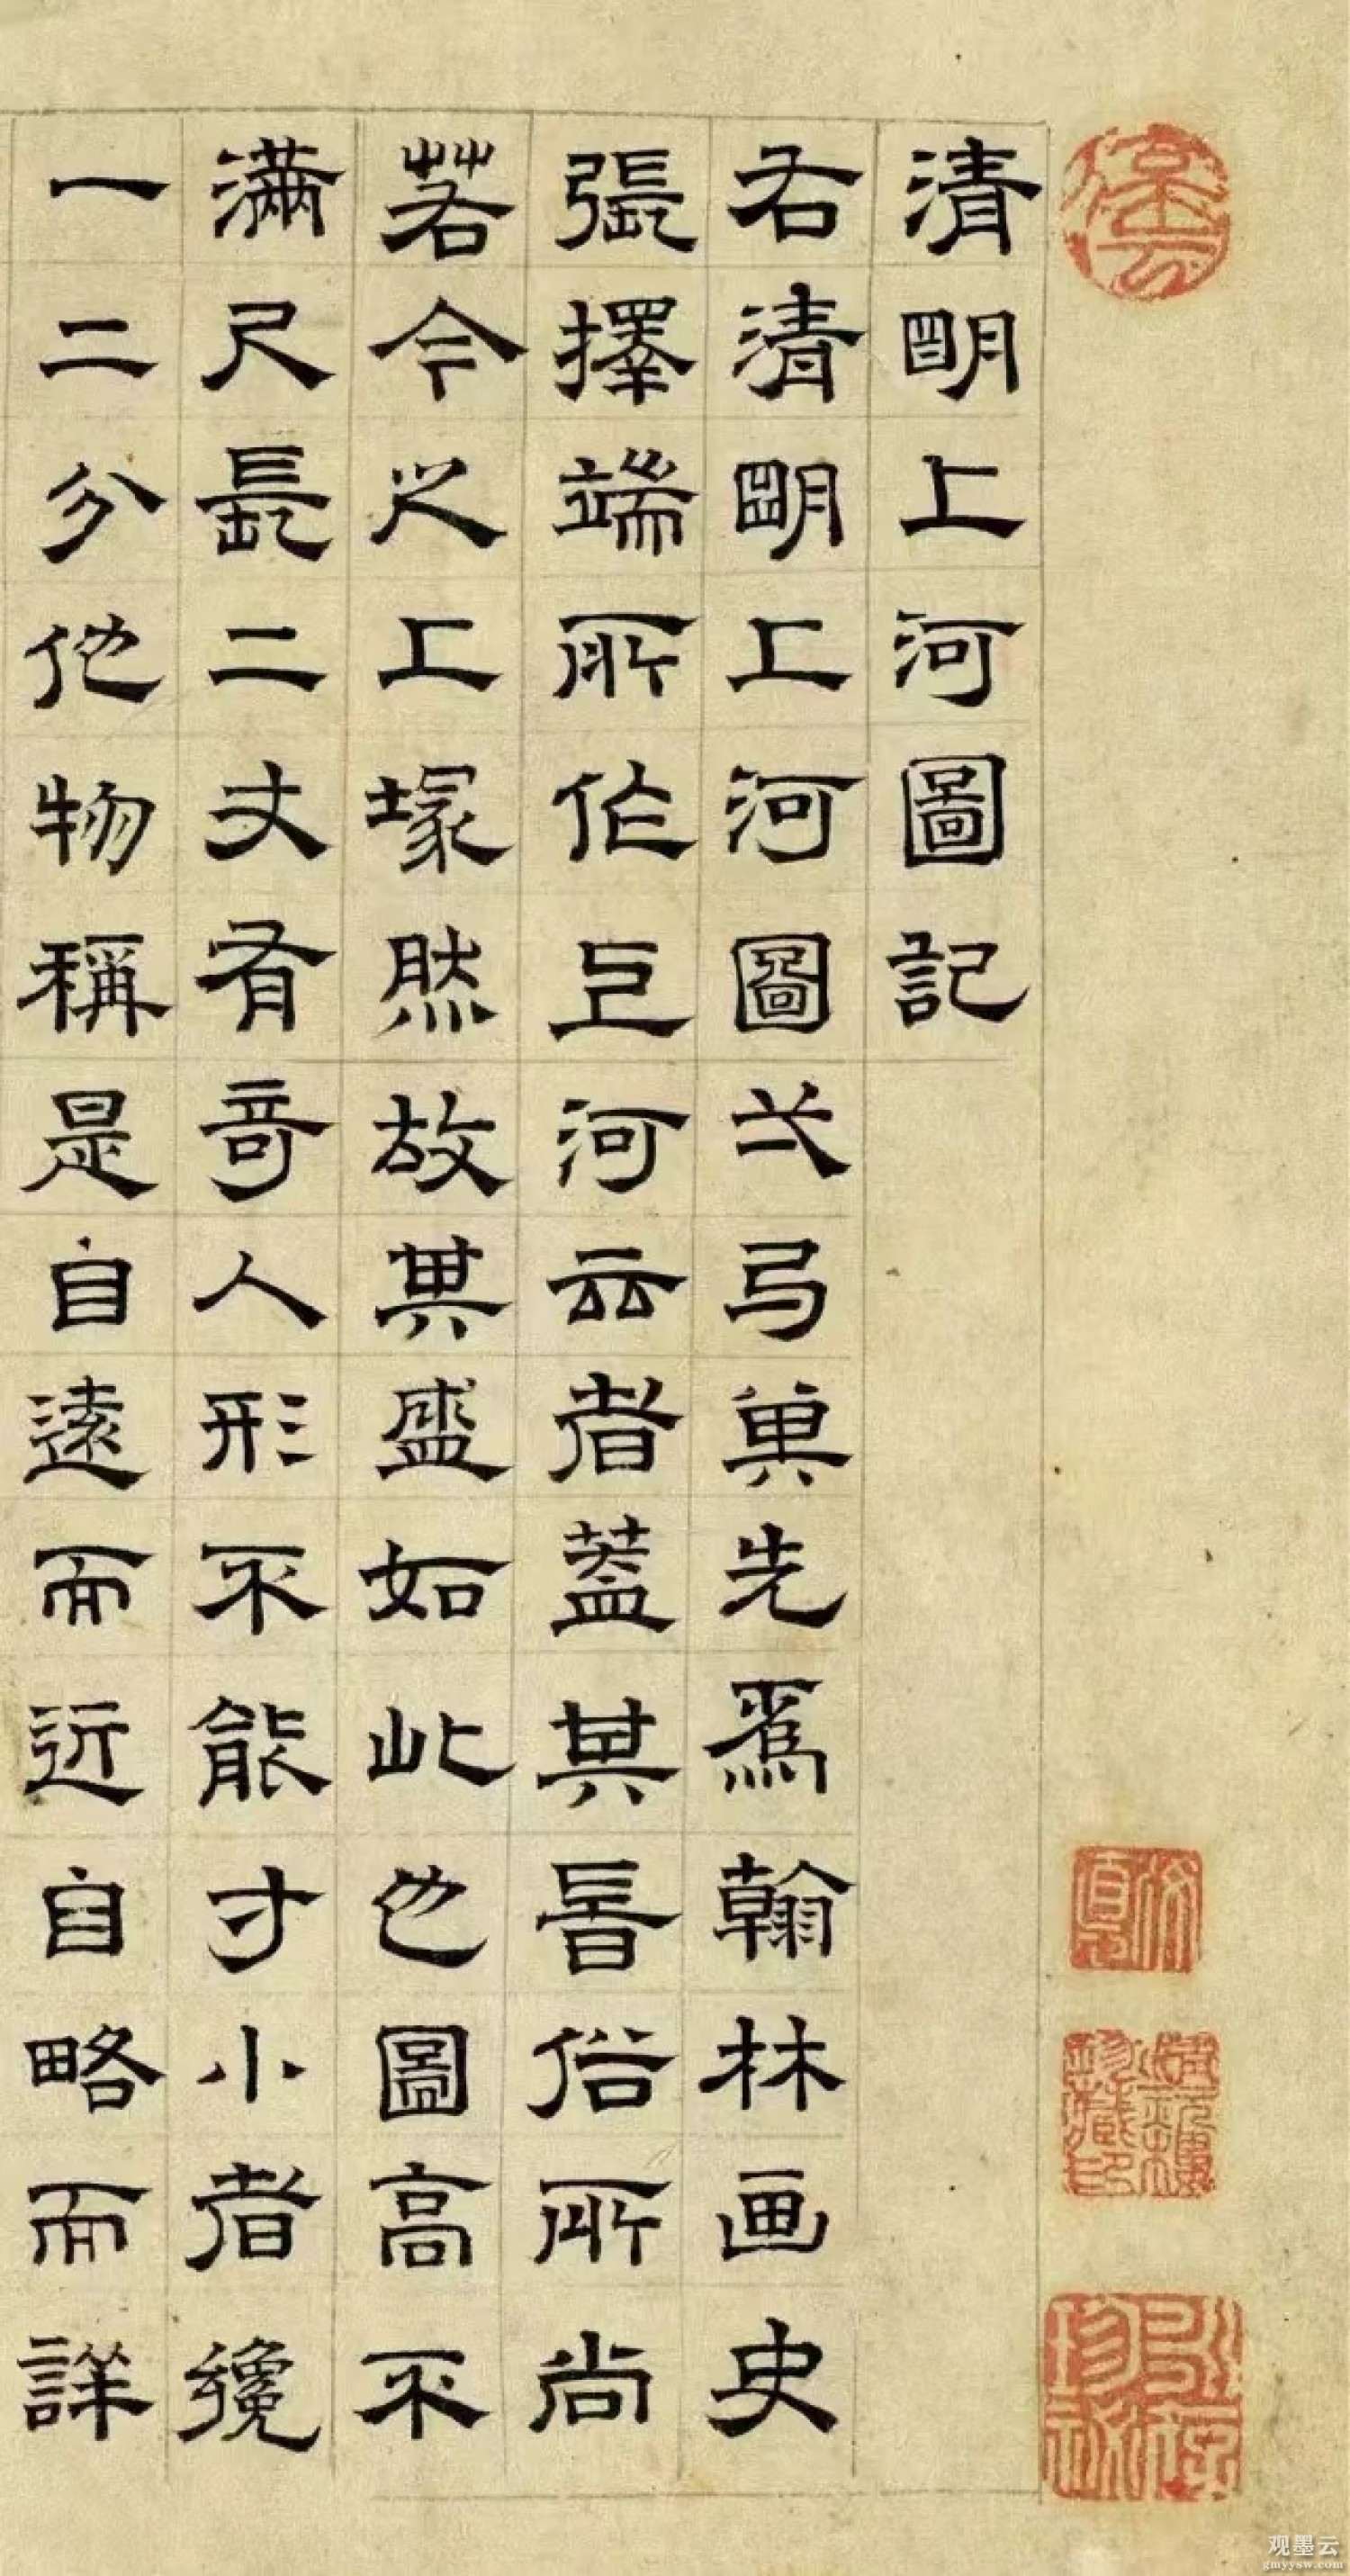 清明上河圖記
右清明上河圖弌弓其先爲翰林画史
張擇端所作上河云者蓋其時俗所尚
若今之上塚然故其盛如此也圖高不
滿尺長二丈有奇人形不能寸小者纔
一二分他物稱是自遠而近自略而詳
观墨云
gmyysw.com